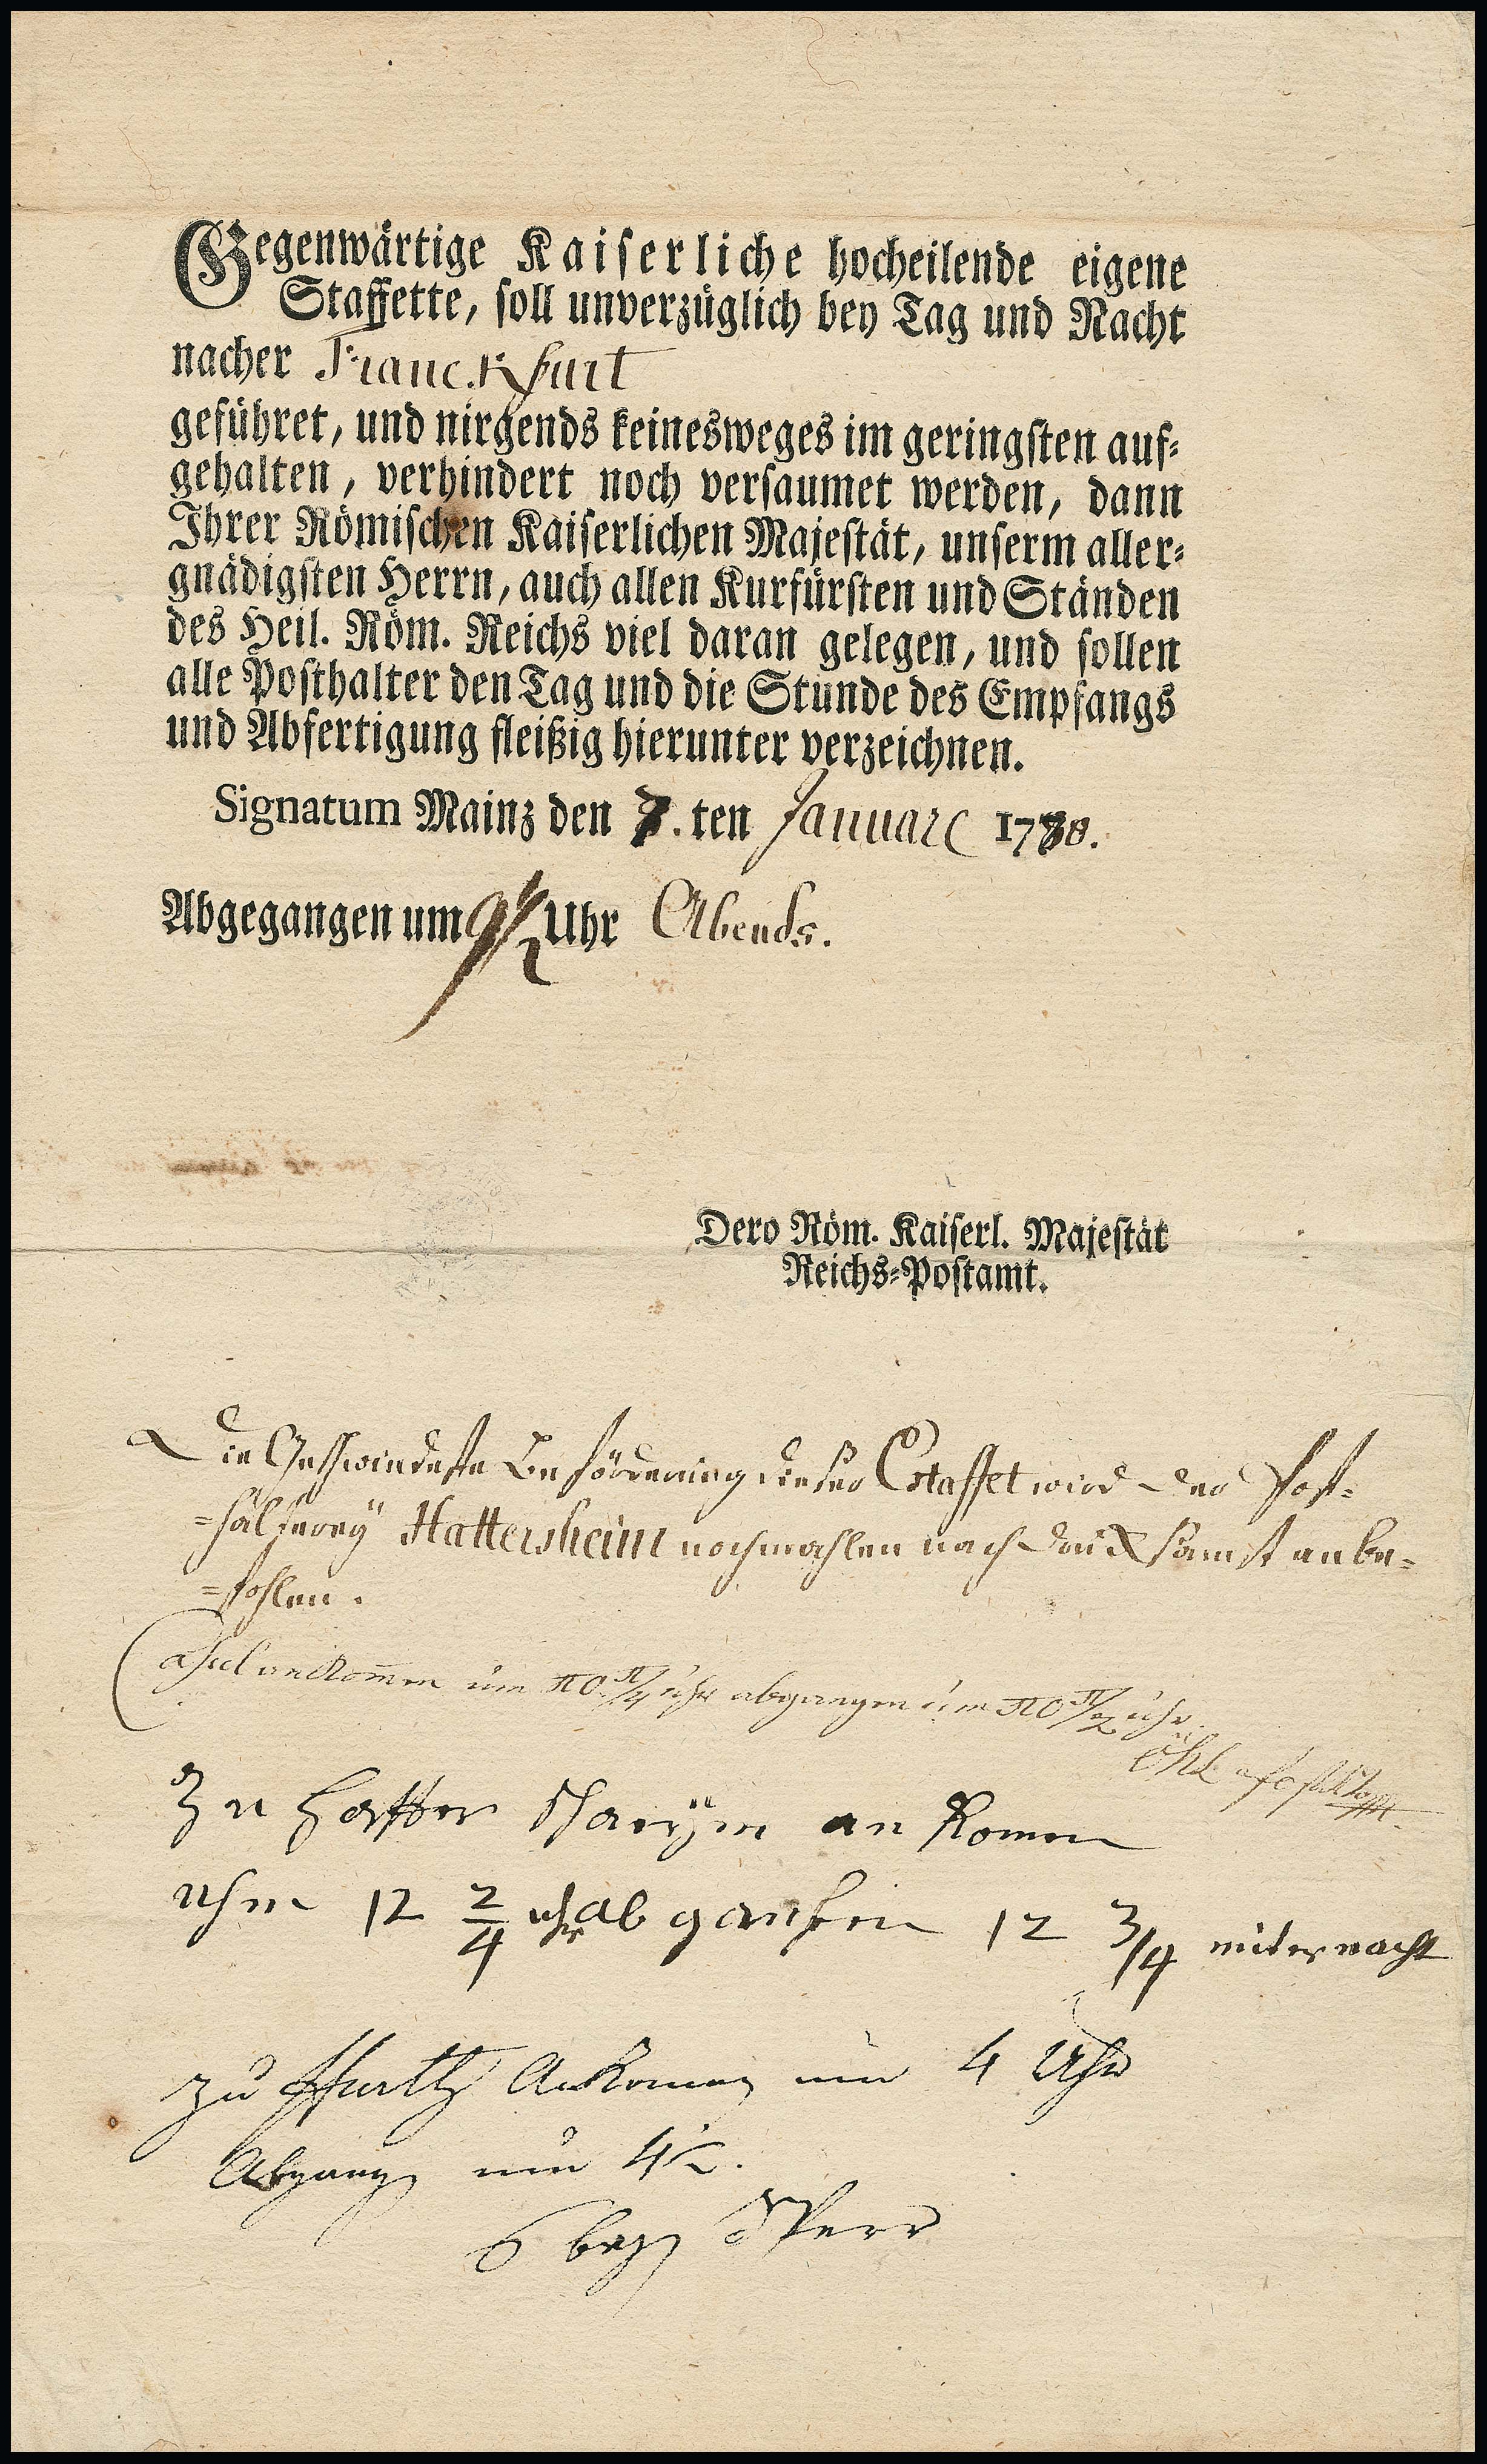 Gegenwärtige Kaiserliche hocheilende eigene
Staffette, soll unverzüglich bey Tag und Nacht
nacher Franckfurt
geführet, und nirgends keinesweges im geringsten auf-
gehalten, verhindert noch versaumet werden, dann
Ihrer Römischen Kaiserlichen Majestät, unserm aller-
gnädigsten Herrn, auch allen Kurfürsten und Ständen
des Heil. Röm. Reichs viel daran gelegen, und sollen
alle Posthalter den Tag und die Stunde des Empfangs
und Abfertigung fleißig hierunter verzeichnen.
Signatum Mainz den ten Januarii 1780.
Abgegangen um 9 1/2 Uhr Abends.
Dero Röm. Kaiserl. Majestät
Reichs-Postamt.
Die Geschwindeste Beförderung dieser Estaffet wird der Post-
=halterey Hattersheim nochmahlen nach-drucksamst anbe-
=fohlen.
ankomen um 10 1/4 uhr abgangen um 10 1/2 uhr
Zu an komen
uhm 12 2/4 uhr ab 12 3/4 miternacht
zu ffurth Ankomen um 4 Uhr
Abgang um 4 1/2.